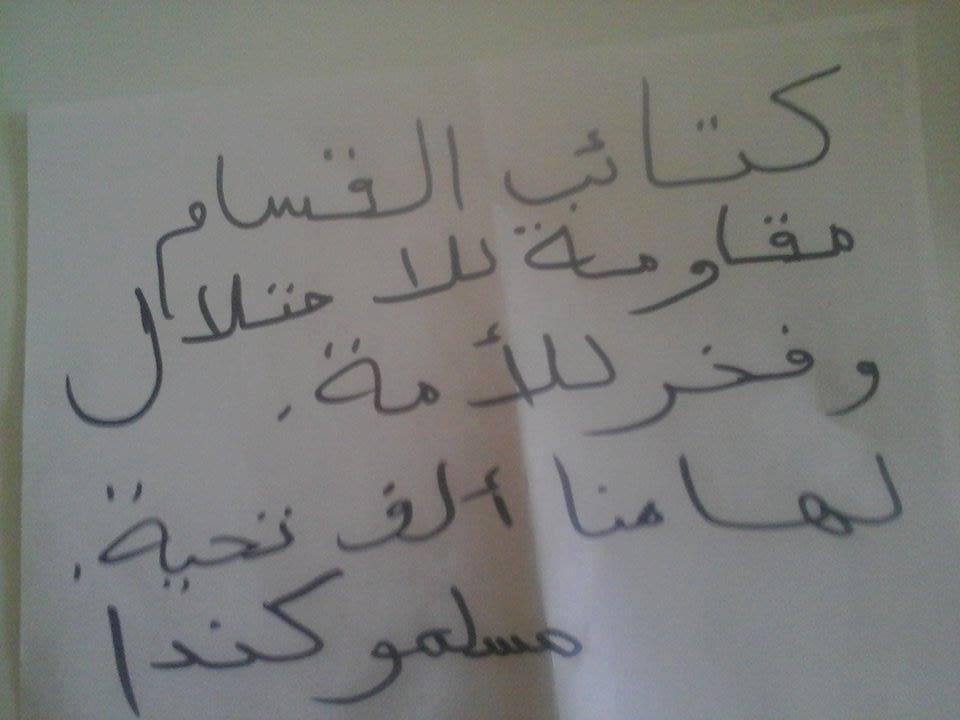 كتائب القسام
مقاومة للاحتلال
وفخر للأمة.
لها منا ألف تحية.
مسلمو كندا